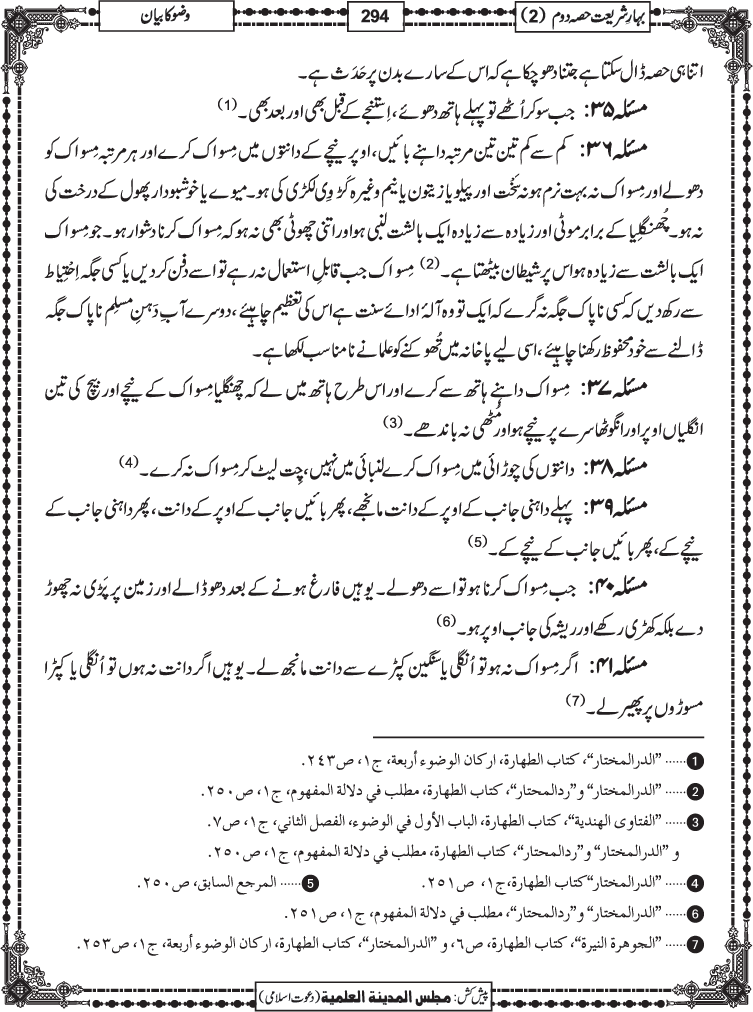 بہارِ شریعت حصہ دوم (2)
294
وضو کا بیان
اتنا ہی حصہ ڈال سکتا ہے جتنا دھو چکا ہے کہ اس کے سارے بدن پر حَدَث ہے۔
مسئلہ ۳۵: جب سو کر اُٹھے تو پہلے ہاتھ دھوئے، اِستنجے کے قبل بھی اور بعد بھی۔ (1)
مسئلہ ۳۶: کم سے کم تین تین مرتبہ داہنے بائیں، اوپر نیچے کے دانتوں میں مِسواک کرے اور ہر مرتبہ مِسواک کو
دھولے اور مِسواک نہ بہت نرم ہو نہ سَخْت اور پیلو یا زیتون یا نیم وغیرہ کڑوی لکڑی کی ہو۔ میوے یا خوشبودار پھول کے درخت کی
نہ ہو۔ چُھنگلیا کے برابر موٹی اور زیادہ سے زیادہ ایک بالشت لنبی ہو اور اتنی چھوٹی بھی نہ ہو کہ مِسواک کرنا دشوار ہو۔ جو مِسواک
ایک بالشت سے زیادہ ہو اس پر شیطان بیٹھتا ہے۔ (2) مِسواک جب قابلِ استعمال نہ رہے تو اسے دفن کر دیں یا کسی جگہ اِحْتِیاط
سے رکھ دیں کہ کسی ناپاک جگہ نہ گرے کہ ایک تو وہ آلۂ ادائے سنت ہے اس کی تعظیم چاہیئے، دوسرے آبِ دَہنِ مسلِم ناپاک جگہ
ڈالنے سے خود محفوظ رکھنا چاہیئے، اسی لیے پاخانہ میں تُھوکنے کو علما نے نامناسب لکھا ہے۔
مسئلہ ۳۷: مِسواک داہنے ہاتھ سے کرے اور اس طرح ہاتھ میں لے کہ چھنگلیا مِسواک کے نیچے اور بیچ کی تین
انگلیاں اوپر اور انگوٹھا سرے پر نیچے ہو اور مُٹھی نہ باندھے۔ (3)
مسئلہ ۳۸: دانتوں کی چوڑائی میں مِسواک کرے لنبائی میں نہیں، چِت لیٹ کر مِسواک نہ کرے۔ (4)
مسئلہ ۳۹: پہلے داہنی جانب کے اوپر کے دانت مانجھے، پھر بائیں جانب کے اوپر کے دانت، پھر داہنی جانب کے
نیچے کے، پھر بائیں جانب کے نیچے کے۔ (5)
مسئلہ ۴۰: جب مِسواک کرنا ہو تو اسے دھولے۔ یوہیں فارغ ہونے کے بعد دھو ڈالے اور زمین پر پَڑی نہ چھوڑ
دے بلکہ کھڑی رکھے اور ریشہ کی جانب اوپر ہو۔ (6)
مسئلہ ۴۱: اگر مِسواک نہ ہو تو اُنگلی یا سنگین کپڑے سے دانت مانجھ لے۔ یوہیں اگر دانت نہ ہوں تو اُنگلی یا کپڑا
مسوڑوں پر پھیر لے۔ (7)
1 ...... ”الدرالمختار“، کتاب الطھارۃ، ارکان الوضوء أربعة، ج۱، ص۲۴۳.
2 ...... ”الدرالمختار“ و”ردالمحتار“، کتاب الطھارۃ، مطلب في دلالة المفهوم، ج۱، ص۲۵۰.
3 ...... ”الفتاوی الھندیة“، کتاب الطھارۃ، الباب الأول في الوضوء، الفصل الثاني، ج۱، ص۷.
و ”الدرالمختار“ و”ردالمحتار“، کتاب الطھارۃ، مطلب في دلالة المفهوم، ج۱، ص۲۵۰.
4 ...... ”الدرالمختار“ کتاب الطھارۃ، ج۱، ص۲۵۱. 5 ...... المرجع السابق، ص۲۵۰.
6 ...... ”الدرالمختار“ و”ردالمحتار“، مطلب في دلالة المفهوم، ج۱، ص۲۵۱.
7 ...... ”الجوهرة النيرة“، کتاب الطھارۃ، ص۶، و ”الدرالمختار“، کتاب الطھارۃ، ارکان الوضوء أربعة، ج۱، ص۲۵۳.
پیش کش: مجلس المدينة العلمية (دعوت اسلامی)